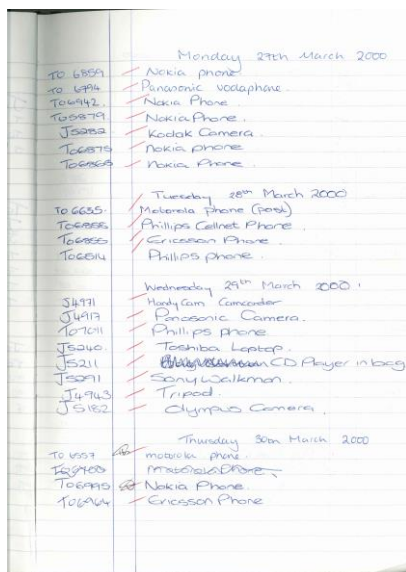 Monday 27th March 2000
TO 6859 Nokia phone
TO 6794 Panasonic vodaphone.
TO6942. Nokia Phone.
TO5879 Nokia Phone.
J5282 Kodak Camera.
TO6875 nokia phone
TO6865 nokia Phone.
Tuesday 28th March 2000
TO 6635. Motorola phone (post)
Phillips Cellnet Phone
TO6855 Ericsson Phone.
TO6814 Phillips phone.
Wednesday 29th March 2000.
J4971 Handy Cam Camcorder
J4917 Panasonic Camera.
TO7011 Phillips phone.
J5240. Toshiba Laptop.
J5211 CD Player in bag
J5291 Sony Walkman.
J4943 Tripod.
J5182 Olympus Camera.
Thursday 30th March 2000
TO 6557 motorola phone.
motorola Phone.
TO6995 Nokia Phone.
TO6964 Ericsson Phone